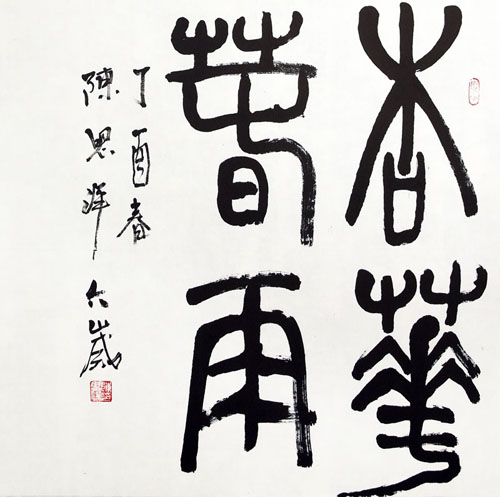 杏華
春雨
丁酉春
陳思 六歲